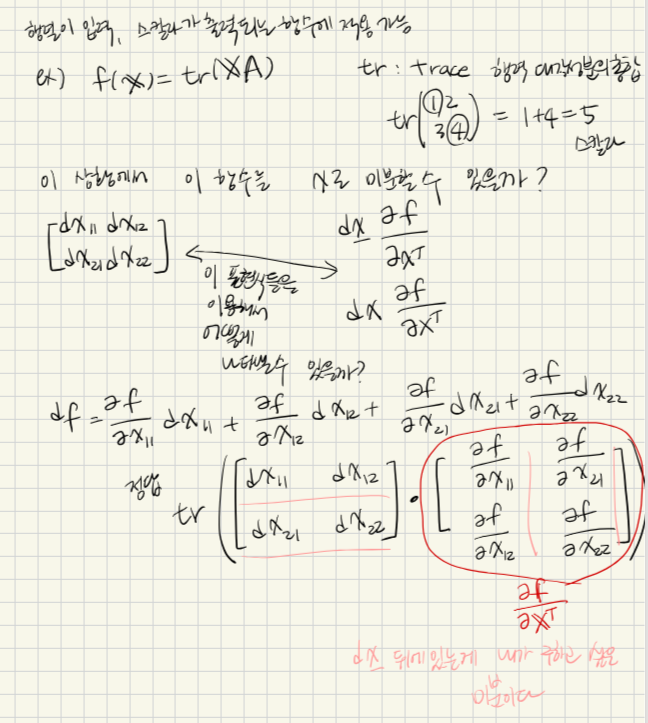 행렬이 입력, 스칼라가 출력되는 함수에 적용 가능
ex) f(X) = tr(XA)
tr : trace 행렬 대각성분의 총합
tr(1 2
3 4) = 1+4 = 5
스칼라
이 상황에서 이 함수를 X로 미분할 수 있을까?
[dx₁₁ dx₁₂
dx₂₁ dx₂₂]
dx ∂f/∂xᵀ
이 표현식들을
이용해서
어떻게
나타낼 수 있을까?
dx ∂f/∂xᵀ
df = ∂f/∂x₁₁ dx₁₁ + ∂f/∂x₁₂ dx₁₂ + ∂f/∂x₂₁ dx₂₁ + ∂f/∂x₂₂ dx₂₂
정답
tr([dx₁₁ dx₁₂
dx₂₁ dx₂₂] · [∂f/∂x₁₁ ∂f/∂x₂₁
∂f/∂x₁₂ ∂f/∂x₂₂])
∂f/∂Xᵀ
dx 뒤에 있는게 내가 구하고 싶은
미분이다